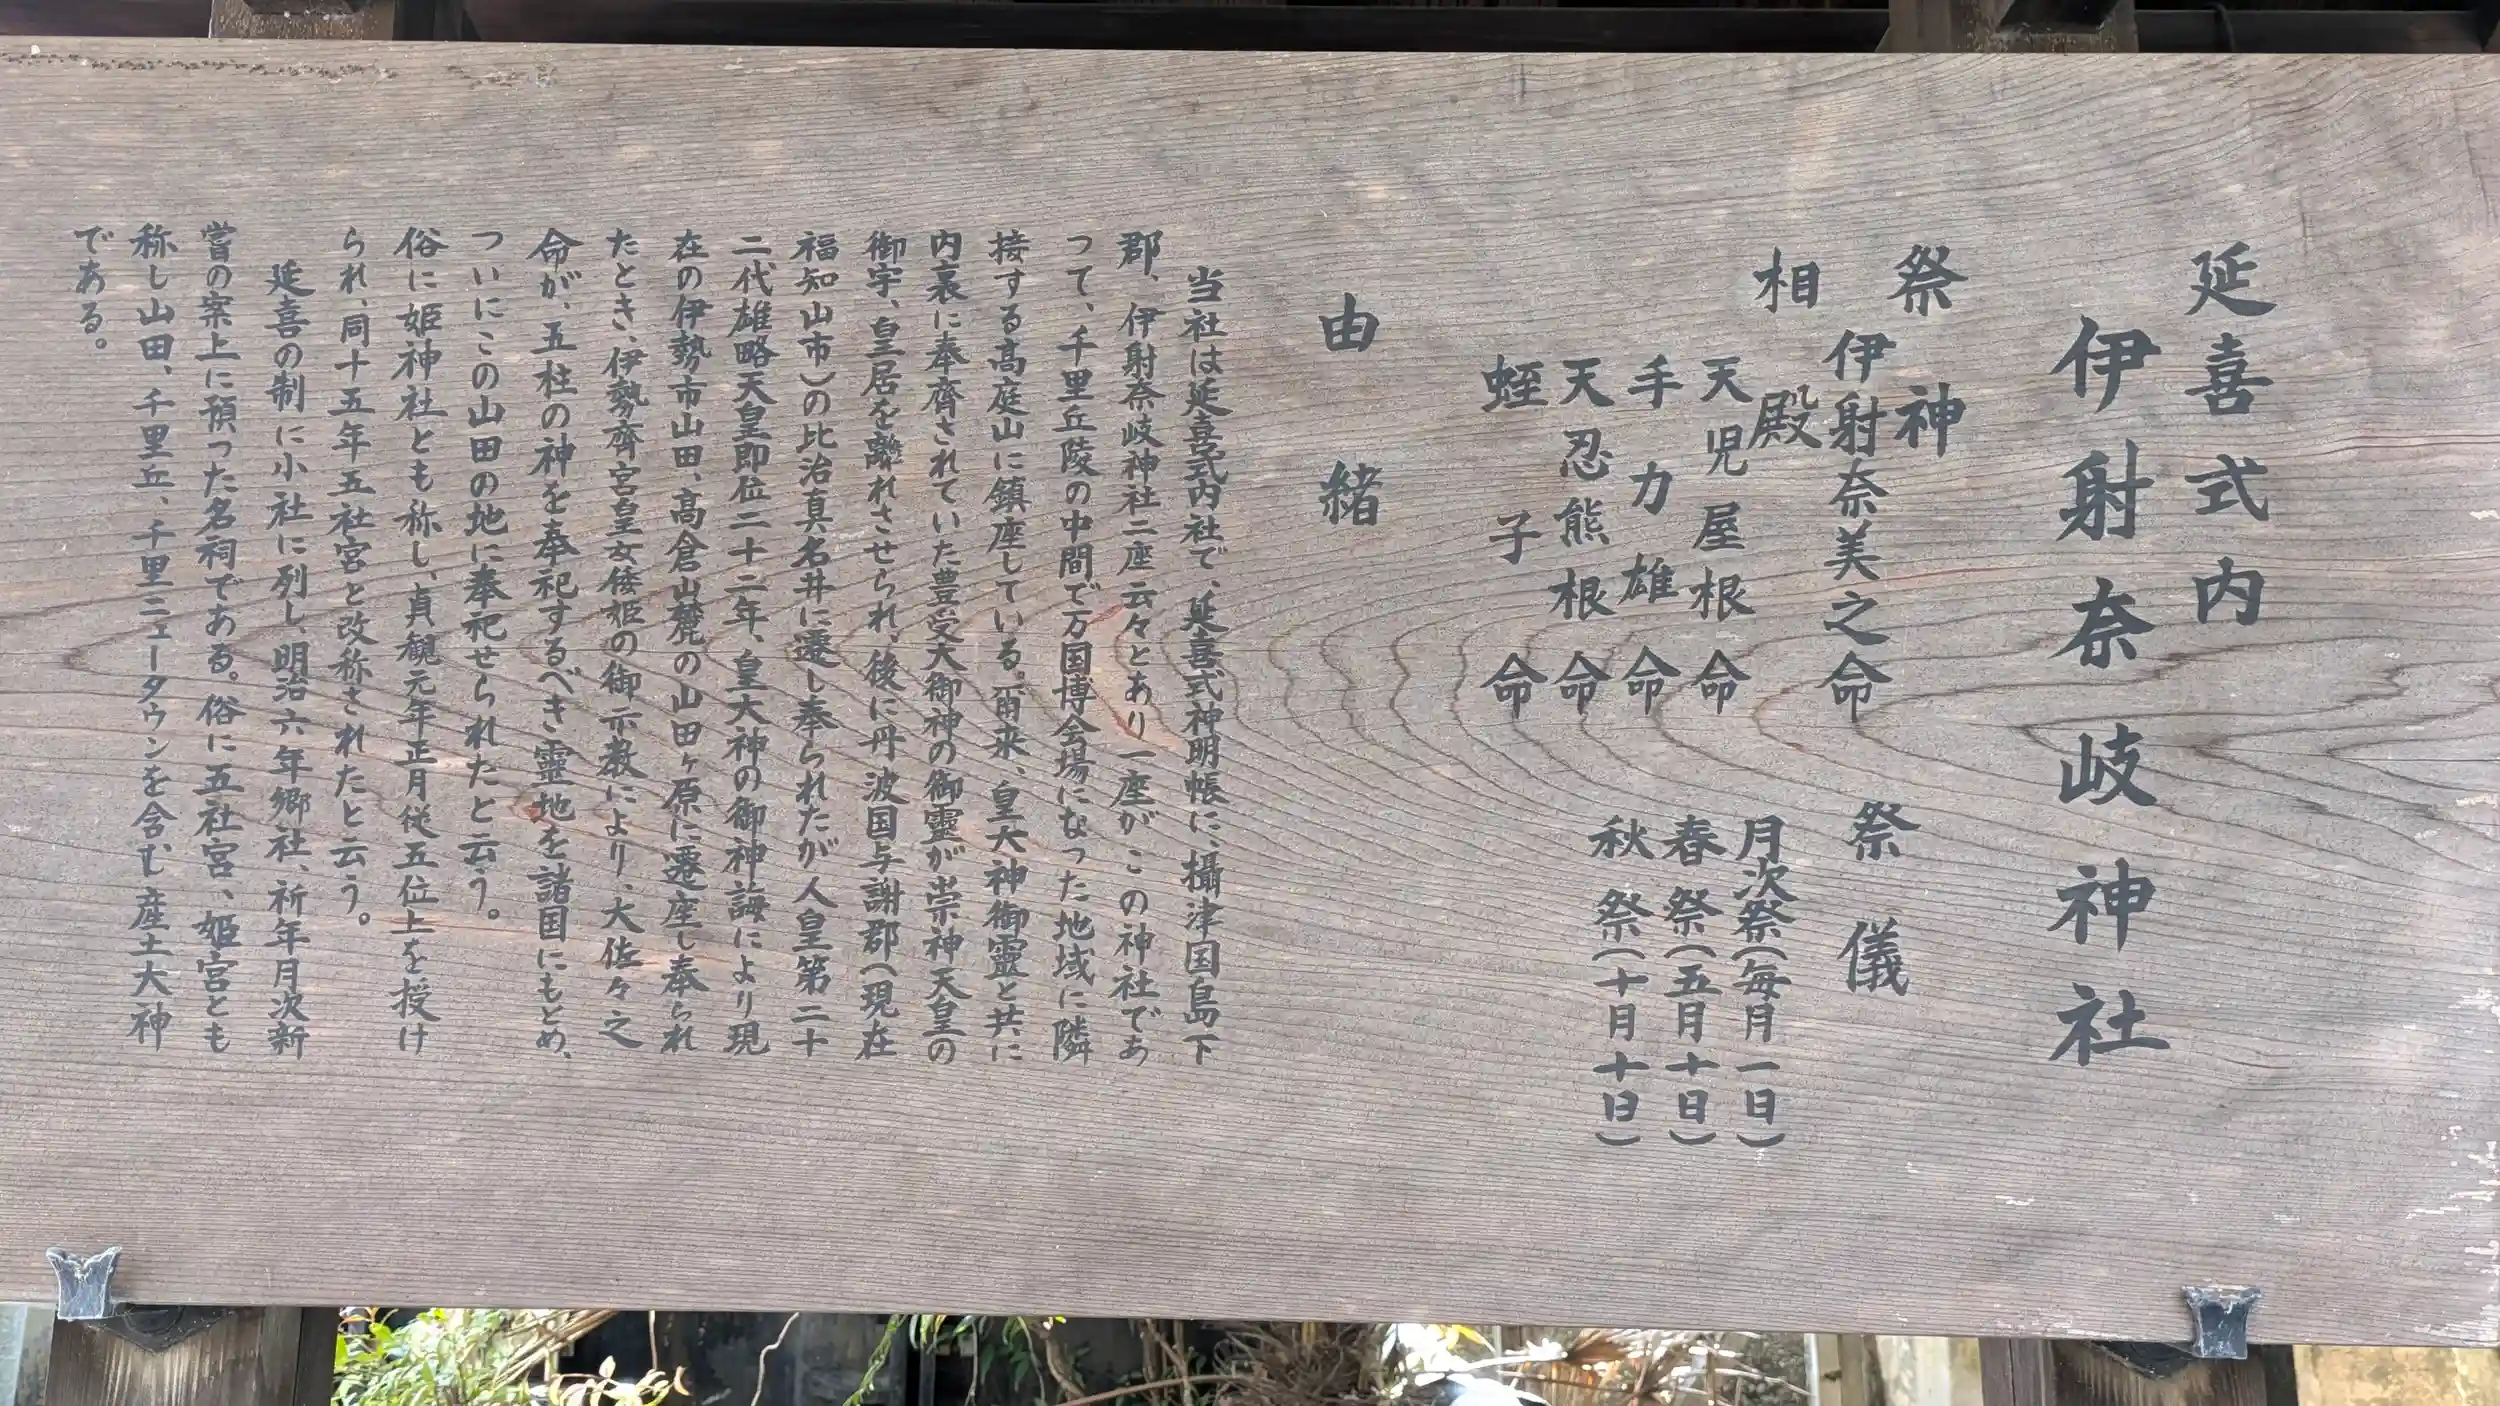 延喜式内
伊射奈岐神社
祭神
伊射奈美之命
相殿
天児屋根命
手力雄命
天忍熊根命
蛭子命
祭儀
月次祭(毎月一日)
春祭(五月十日)
秋祭(十月十日)
由緒
当社は延喜式内社で、延喜式神明帳に、攝津国島下
郡、伊射奈岐神社二座云々とあり一座がこの神社であ
つて、千里丘陵の中間で万国博会場になった地域に隣
接する高庭山に鎮座している。爾来、皇大神御靈と共に
内裏に奉齊されていた豊受大御神の御靈が崇神天皇の
御宇、皇居を離れさせられ、後に丹波国与謝郡(現在
福知山市)の比治真名井に遷し奉られたが人皇第二十
二代雄略天皇即位二十二年、皇大神の御神誨により現
在の伊勢市山田、高倉山麓の山田ヶ原に遷座し奉られ
たとき、伊勢齊宮皇女倭姫の御示教により、大佐々之
命が、五柱の神を奉祀するべき靈地を諸国にもとめ、
ついにこの山田の地に奉祀せられたと云う。
俗に姫神社とも称し、貞観元年正月従五位上を授け
られ、同十五年五社宮と改称されたと云う。
延喜の制に小社に列し、明治六年郷社、祈年月次新
嘗の案上に預った名祠である。俗に五社宮、姫宮とも
称し山田、千里丘、千里ニュータウンを含む産土大神
である。